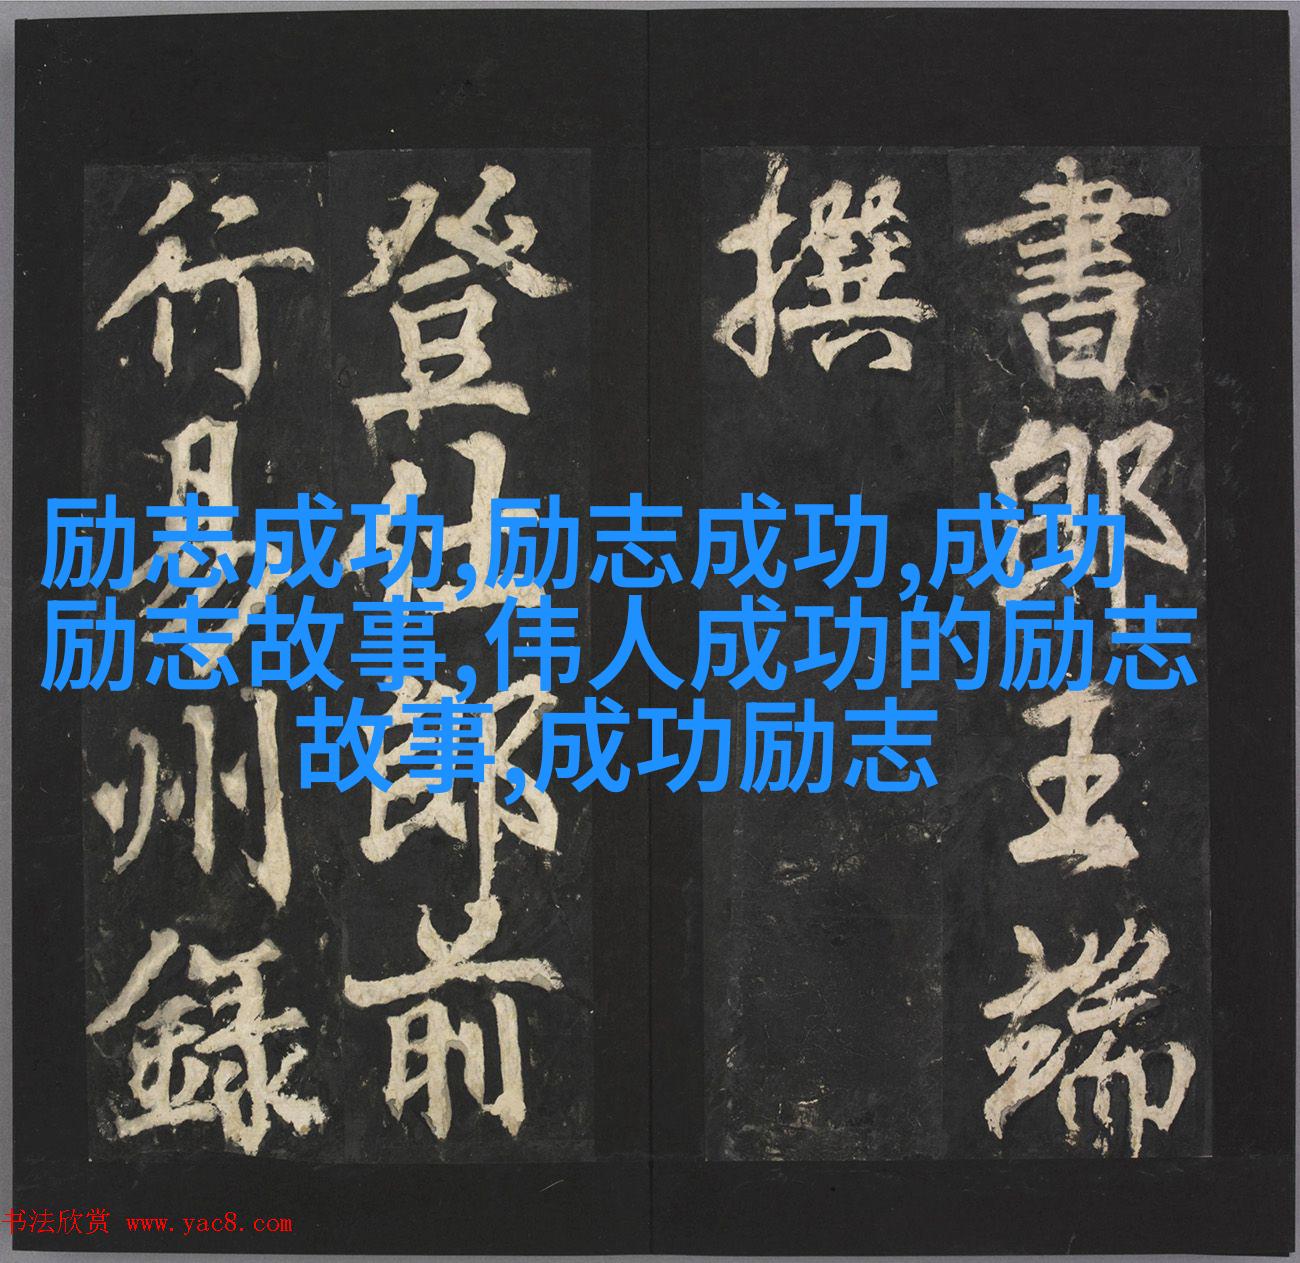 書郎王端
撰
登仕郎前
行易州錄
励志成功,励志成功,成功
励志故事,伟人成功的励志
故事,成功励志
书法欣赏 www.yac8.com